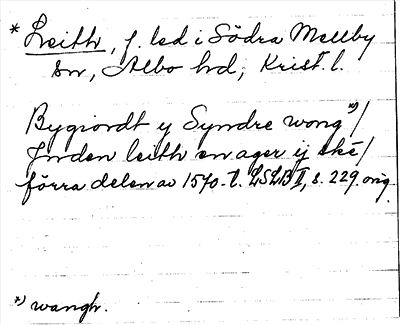 * Leith, f. led i Södra Mellby
sn, Albo hd, Krist. l.
Bygiordt y Syndre wong *)/
Jnden leith en ager ij ske/
förra delen av 1570-t. LSLB II, s. 229. orig.
*) wangh.